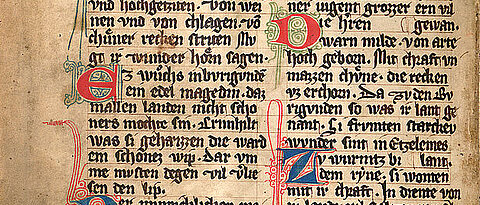 vnd hochgeziten. von wei
nen vnd von chlagen. vō
chůner recken striten. Mv
gt ir wunder horn sagen.
Ez wůchs in burgunde
ein edel magedin. daz
in allen landen nicht scho
ners mochte sin. Crimhilt
was si geheizzen die ward
ein schonez wip. Dar vm
me mvsten degen vil vlie
sen den lip.
ner jugent grozer ern vil
Die hren gewan.
warn milde. von arte
hoch geborn. Mit chraft vn
mazzen chvne. die recken
vz erchorn. Da zv den Bv
rigunden so was ir lant ge
nant. Si frvmten starckev
wunder sint in Etzelenes
Zv wurmtz bi lant.
dem ryne. si wonten
mit ir chraft. In diente von